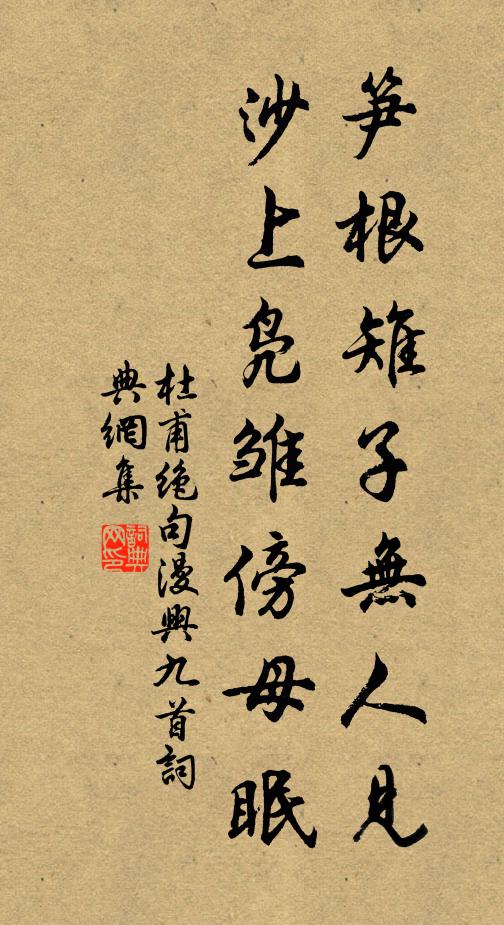 笋根雉子無人見
沙上鳧雛傍母眠
杜甫絶句漫興九首詞
典網集
詞典網印